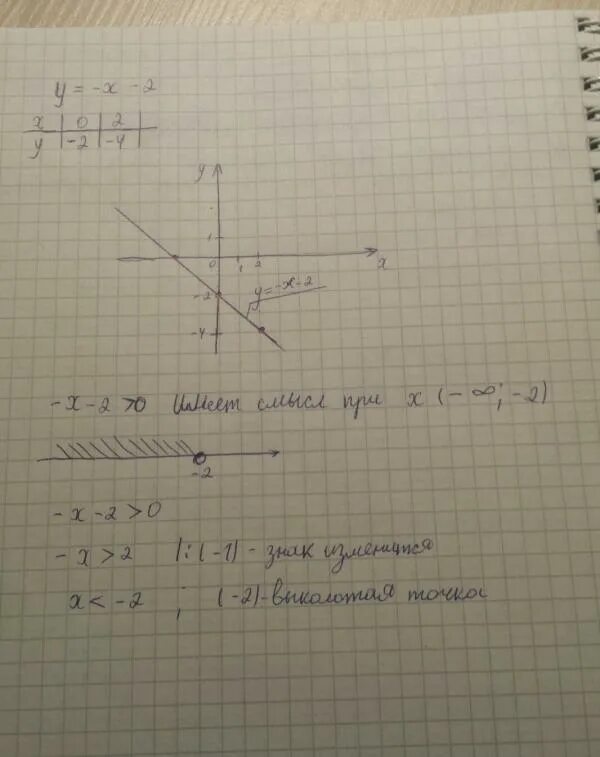 y = -x - 2
x | 0 | 2 |
y | -2 | -4 |
y
1
0 1 2
x
-2
y = -x - 2
-4
-x - 2 > 0 Имеет смысл при x (-∞; -2)
-2
-x - 2 > 0
-x > 2 |:(-1) - знак изменится
x < -2 ; (-2) - выколотая точка